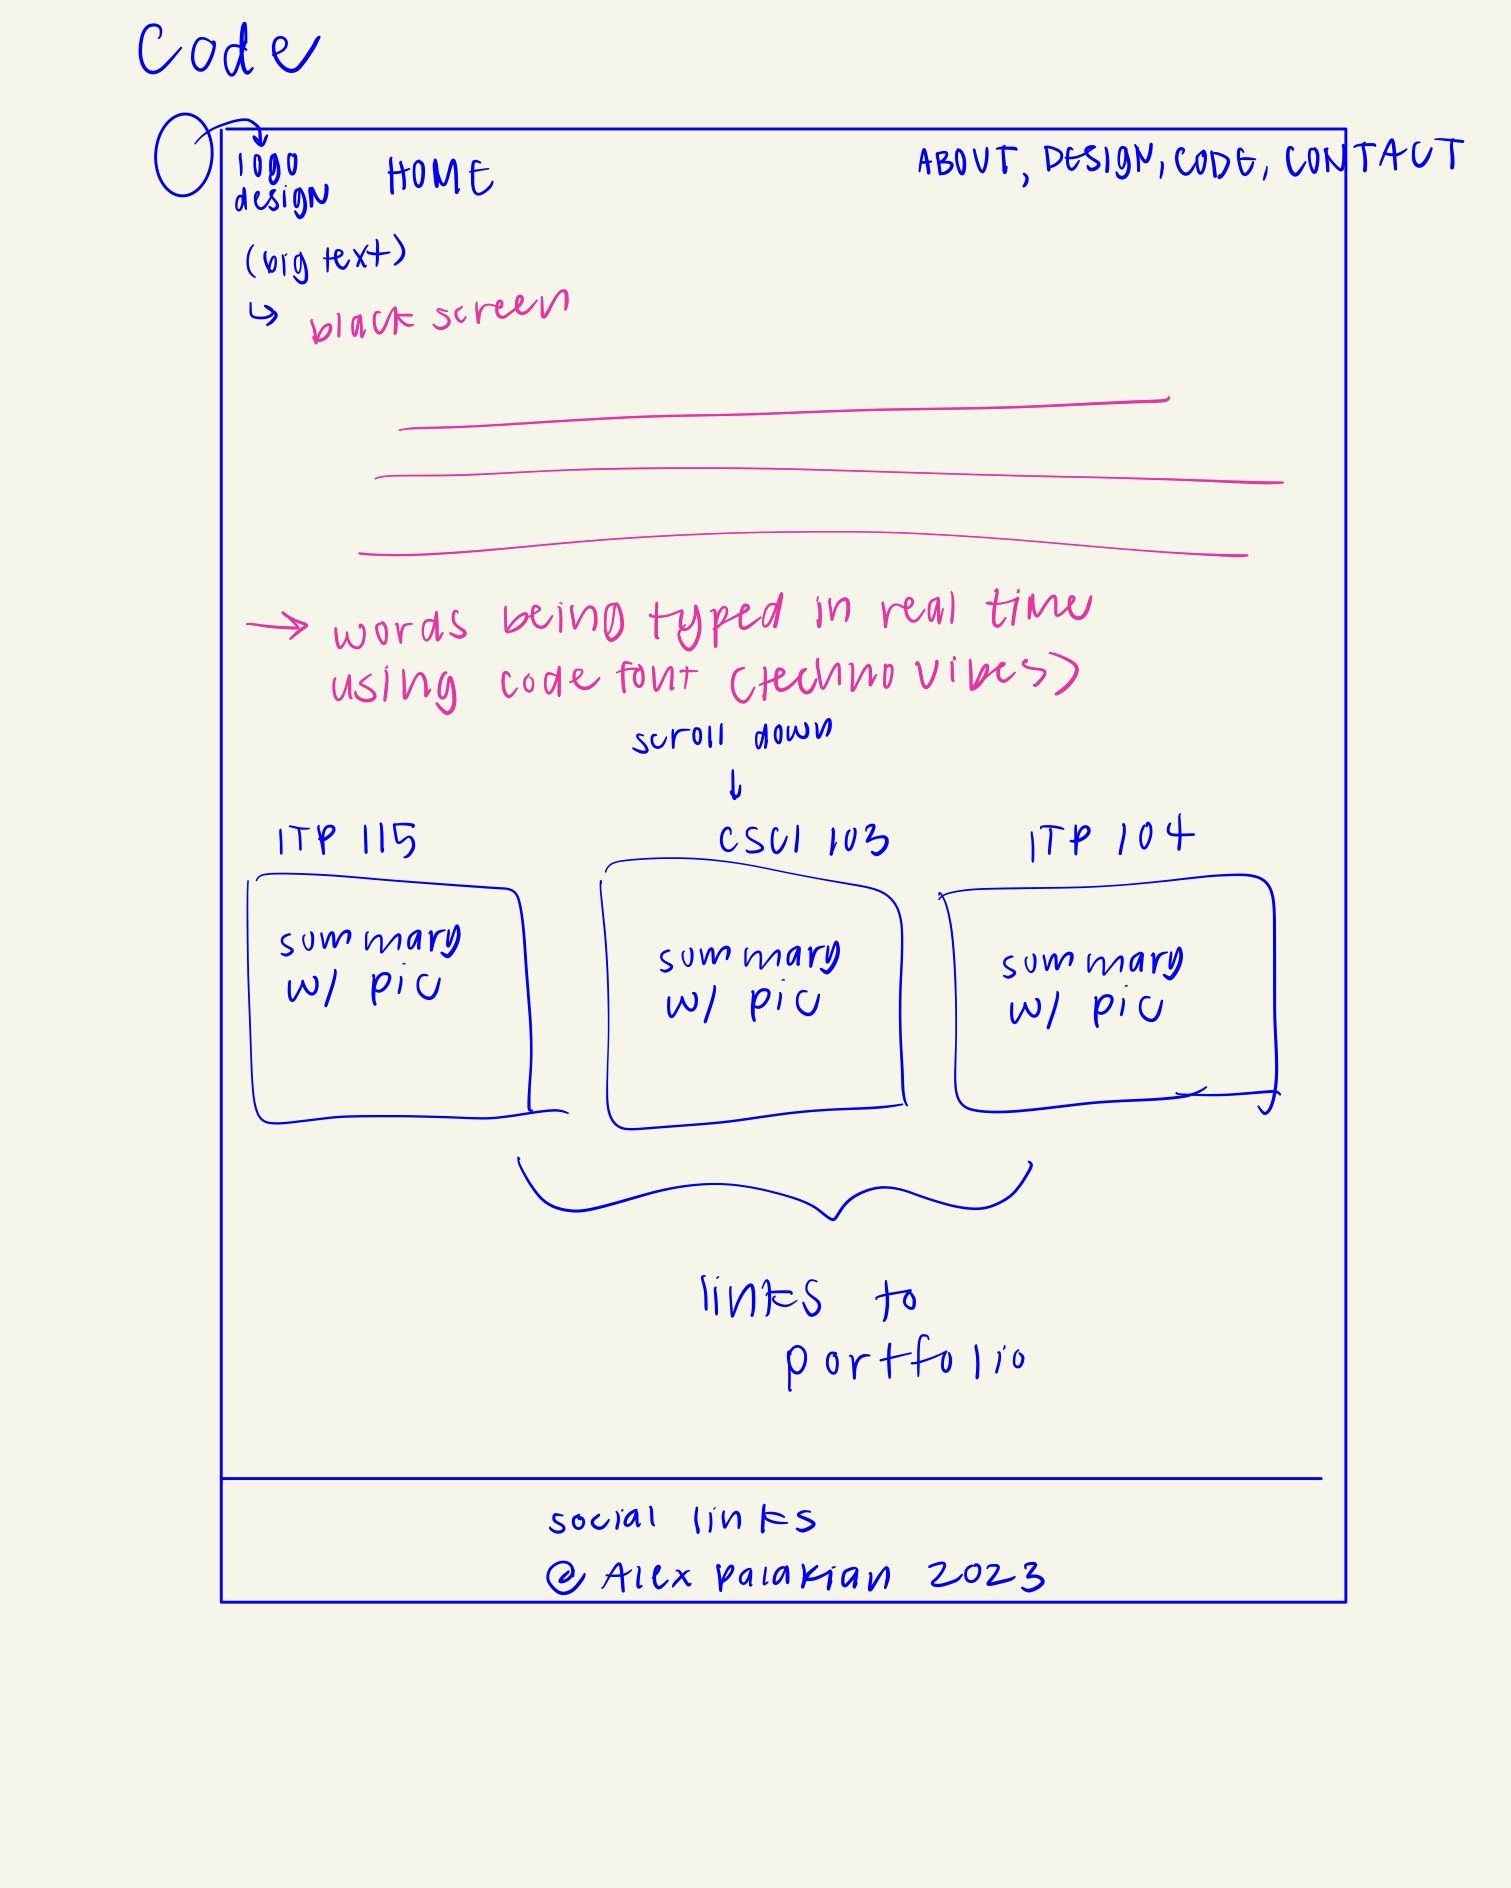 Code
logo
design
HOME
ABOUT, DESIGN, CODE, CONTACT
(big text)
black screen
words being typed in real time
using code font (techno vibes)
scroll down
ITP 115
CSCI 103
ITP 104
summary
w/ pic
summary
w/ pic
summary
w/ pic
links to
portfolio
social links
@ Alex Palakian 2023